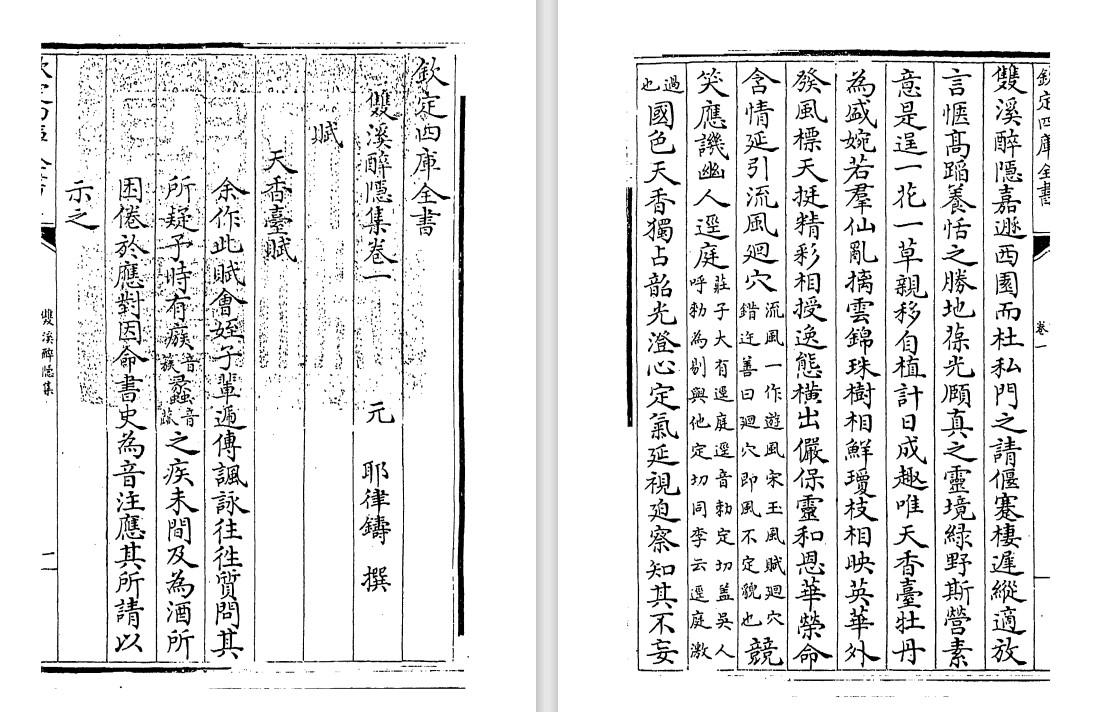 欽定四庫全書
雙溪醉隱集卷一
元 耶律鑄 撰
賦
天香臺賦
余作此賦會姪子輩遍傳諷詠往往質問其
所疑予時有瘯音蔟蠡音蓏之疾未間及為酒所
困倦於應對因命書史為音注應其所請以
示之
雙溪醉隱集 一
欽定四庫全書 卷一
雙溪醉隱嘉遯西園而杜私門之請偃蹇棲遲縱適放
言愜髙蹈養恬之勝地葆光頤真之靈境綠野斯營素
意是逞一花一草親移自植計日成趣唯天香臺牡丹
為盛婉若羣仙亂摛雲錦珠樹相鮮瓊枝相映英華外
發風標天挺精彩相授逸態橫出儼保靈和恩華榮命
含情延引流風廻穴流風一作遊風宋玉風賦廻穴錯迕善曰廻穴即風不定貌也競
笑應譏幽人逕庭莊子大有逕庭逕音勅定切蓋吳人呼勅為剔與他定切同李云逕庭激
過也國色天香獨占韶光澄心定氣延視廹察知其不妄